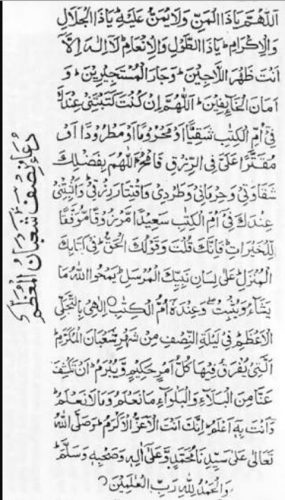 اَللّٰهُمَّ يَا ذَا الْمَنِّ وَلَا يُمَنُّ عَلَيْهِ يَا ذَا الْجَلَالِ
وَالْاِكْرَامِ يَا ذَا الطَّوْلِ وَالْاِنْعَامِ لَا اِلٰهَ اِلَّا
اَنْتَ ظَهْرُ اللَّاجِيْنَ وَجَارُ الْمُسْتَجِيْرِيْنَ وَ
اَمَانُ الْخَائِفِيْنَ اَللّٰهُمَّ اِنْ كُنْتَ كَتَبْتَنِيْ عِنْدَكَ
فِيْ اُمِّ الْكِتٰبِ شَقِيًّا اَوْ مَحْرُوْمًا اَوْ مَطْرُوْدًا اَوْ
مُقَتَّرًا عَلَيَّ فِي الرِّزْقِ فَامْحُ اللّٰهُمَّ بِفَضْلِكَ
شَقَاوَتِيْ وَحِرْمَانِيْ وَطَرْدِيْ وَاقْتِتَارَ رِزْقِيْ وَاَثْبِتْنِيْ
عِنْدَكَ فِيْ اُمِّ الْكِتٰبِ سَعِيْدًا مَّرْزُوْقًا مُّوَفَّقًا
لِّلْخَيْرَاتِ فَاِنَّكَ قُلْتَ وَقَوْلُكَ الْحَقُّ فِيْ كِتَابِكَ
الْمُنَزَّلِ عَلٰى لِسَانِ نَبِيِّكَ الْمُرْسَلِ يَمْحُوا اللّٰهُ مَا
يَشَآءُ وَيُثْبِتُ وَعِنْدَهٗ اُمُّ الْكِتٰبِ اِلٰهِيْ بِالتَّجَلِّي
الْاَعْظَمِ فِيْ لَيْلَةِ النِّصْفِ مِنْ شَهْرِ شَعْبَانَ الْمُكَرَّمِ
الَّتِيْ يُفْرَقُ فِيْهَا كُلُّ اَمْرٍ حَكِيْمٍ وَّيُبْرَمُ اَنْ تَكْشِفَ
عَنَّا مِنَ الْبَلَآءِ وَالْبَلْوَآءِ مَا نَعْلَمُ وَمَا لَا نَعْلَمُ
وَاَنْتَ بِهٖ اَعْلَمُ اِنَّكَ اَنْتَ الْاَعَزُّ الْاَكْرَمُ وَصَلَّى اللّٰهُ
تَعَالٰى عَلٰى سَيِّدِنَا مُحَمَّدٍ وَّعَلٰى اٰلِهٖ وَصَحْبِهٖ وَسَلَّمَ
وَالْحَمْدُ لِلّٰهِ رَبِّ الْعٰلَمِيْنَ
دُعَاءِ نِصْفِ شَعْبَانُ الْمُعَظَّمْ